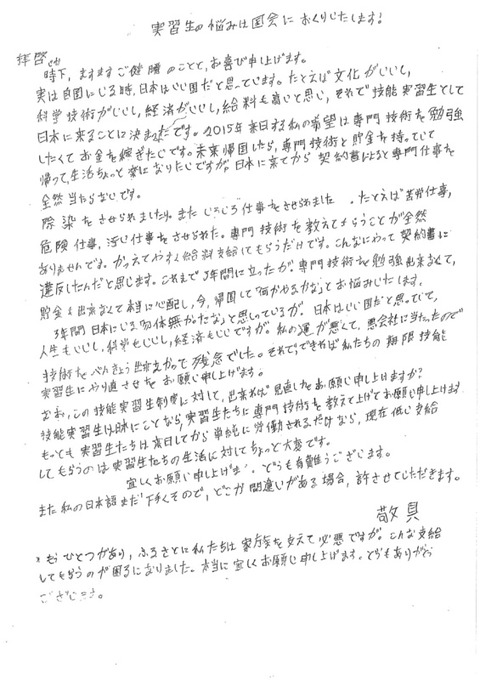 実習生の悩みは国会に おくりいたします!
拝啓
時下、ますますご健勝のことと、お喜び申し上げます。
実は自国にいる時、日本はいい国だと思っています。たとえば文化がいいし、
科学技術がいいし、経済がいいし、給料も高いと思い、それで技能実習生として
日本に来ることに決またです。2015年来日する私の希望は専門技術を勉強
したくてお金を稼ぎたいです。未来帰国したら、専門技術と貯金を持っていて
帰って、生活ちょっと楽になりたいですが。日本に来てから 契約書によると専門仕事を
全然当たらないです。
除染をさせられました。また いろいろ仕事をさせられました 。たとえば苦労仕事、
危険仕事、汚い仕事をさせられた。専門技術を教えてもらうことが全然
ありませんでした。かつえてやすく給料支給してもらうだけです。こんなにやって契約書に
違反したんだと思います。これまで3年間に立ったが。専門技術を勉強出来なくて、
貯金も出来なくて本当に心配し、今、帰国して「何かやるかな」とお悩みいたします。
3年間日本にいる勿体無かったな」と思っているが。日本はいい国だと思っていて、
人生もいいし、科学もいいし、経済もいいですが。私の運が悪くて、悪会社に当たったので
技術をべんきょう出来なかって残念でした。それで、できれば私たちの期限技能
実習生にやり直させをお願い申し上げます。
なお、この技能実習生制度に対して、出来れば見直しをお願い申し上げますか?
技能実習生は勝にことなら、実習生たちに専門技術を教えて上げてお願い申し上げます
もっとも実習生たちは来日してから単純に労働されるだけなら、現在低い支給
してもらうのは実習生たちの生活に対してちょっと大変です。
宜しくお願い申し上げます。どうも有難うございます。
また私の日本語まだ下手くそので、どこか間違いがある場合、許させていただきます。
敬具
* もひとつがあり、ふるさとに私たちは家族を支えて必要ですが。こんな支給
してもらうのが困るになりました。本当に宜しくお願い申し上げます。どうもありがとう
ございます。